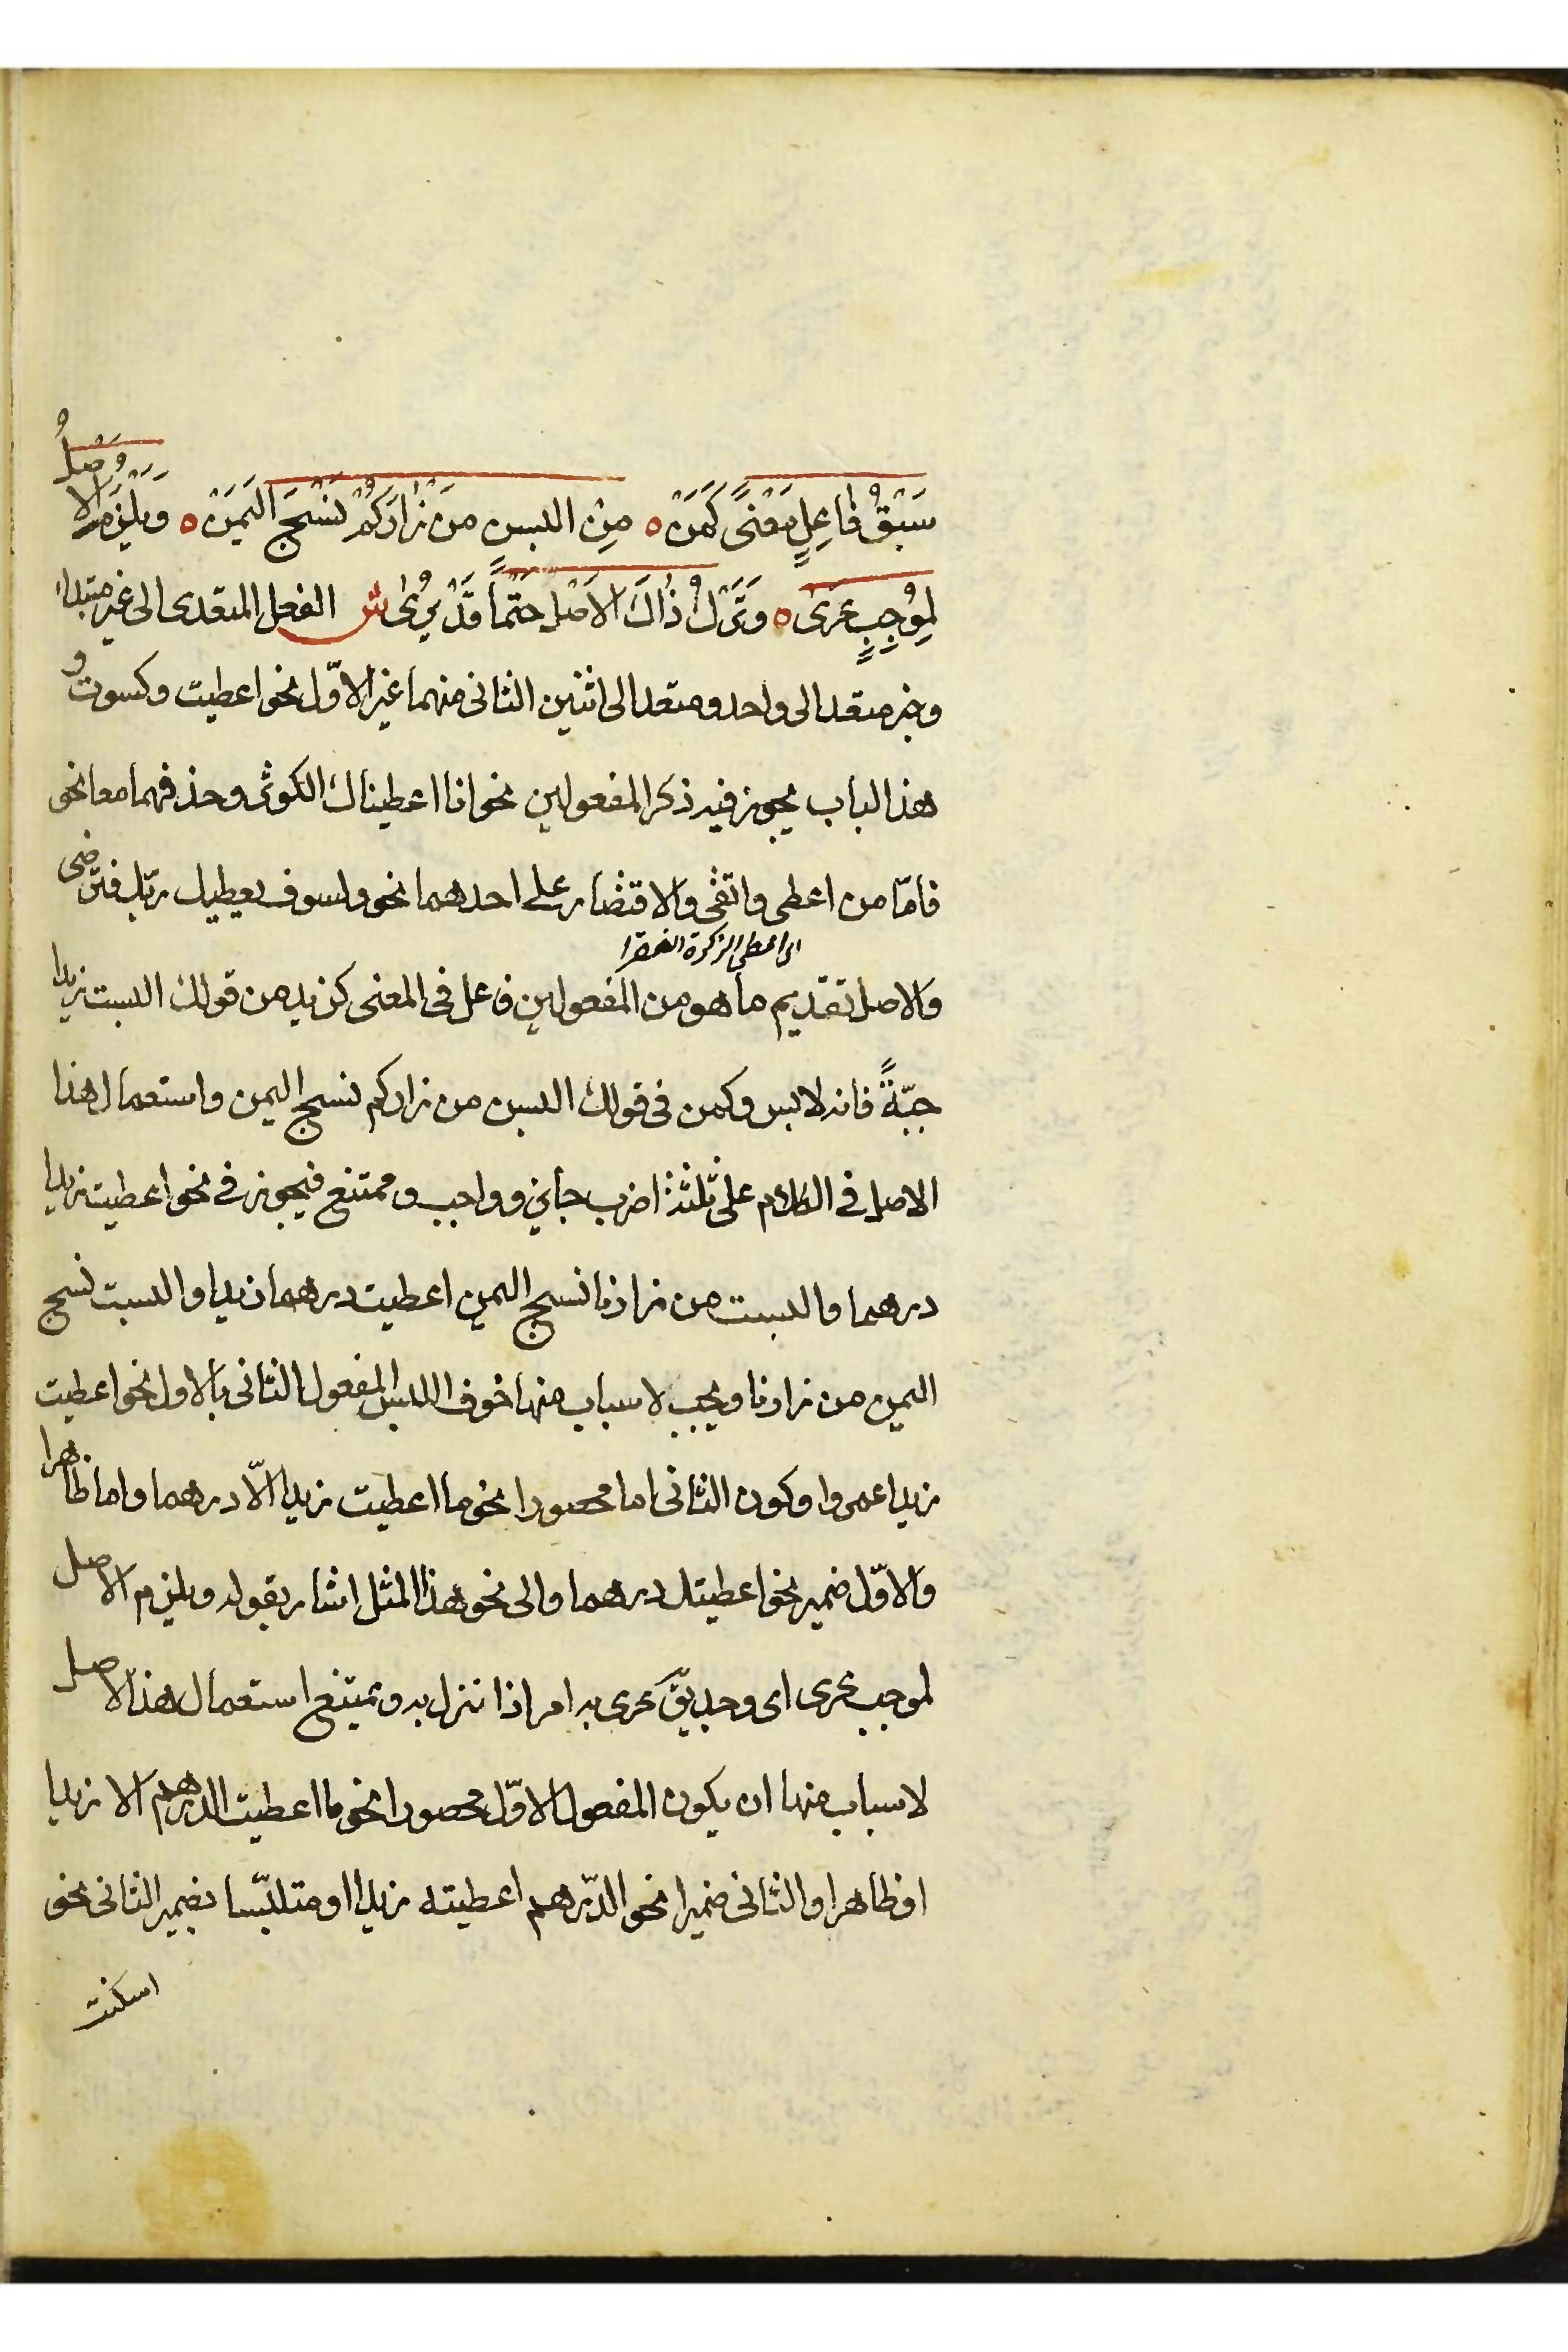 سَبْقُ فَاعِلٍ مَعْنًى كَمَنْ ه مِن البسن من زَارَكُمْ نَسْجَ الْيَمَنْ ه وَيَلْزَمُ الاصلُ
لِمُوجِبٍ عَرَى ه وَتَرْكُ ذَاكَ الاَصْلِ حَتْماً قَدْ يُرَى ش الفعل المتعدى الى غير مبتداء
وخبر متعد الى واحد ومتعد الى اثنين الثانى منهما غير الاوّل نحو اعطيت وكسوت و
هذا الباب يجوز فيه ذكر المفعولين نحو انا اعطيناك الكوثر وحذفهما معا نحو
فامّا من اعطى واتقى والاقتصار على احدهما نحو ولسوف يعطيك ربّك فترضى
اى اعطى الزكوة الفقرا
والاصل تقديم ما هو من المفعولين فاعل فى المعنى كزيد من قولك البست زيدا
جبّةً فانه لابس وكمن فى قولك البسن من زاركم نسج اليمن واستعمال هذا
الاصل فى الكلام على ثلثة اضرب جايز وواجب وممتنع فيجوز فى نحو اعطيت زيدا
درهما والبست من زارنا نسج اليمن اعطيت درهما زيدا والبست نسج
اليمن من زارنا ويجب لاسباب منها خوف اللبس المفعول الثانى بالاول نحو اعطيت
زيدا عمروا وكون الثانى اما محصورا نحو ما اعطيت زيدا الّا درهما واما ظاهرا
والاوّل ضمير نحو اعطيتك درهما والى نحو هذا المثل اشار بقوله ويلزم الاصل
لموجب عرى اى وجد يقّ عرى به امر اذا نزل به ويمتنع استعمال هذا الاصل
لاسباب منها ان يكون المفعول الاوّل محصورا نحو ما اعطيت الدرهم الا زيدا
او ظاهرا والثانى ضميرا نحو الدّرهم اعطيته زيدا او متلبّسا بضمير الثانى نحو
اسكنت